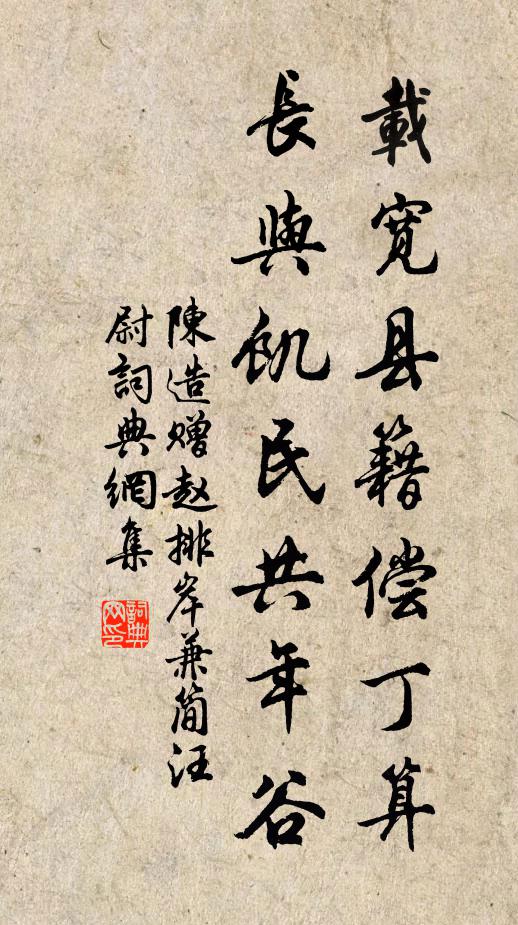 載寬县籍偿丁算
長與飢民共年谷
陳造赠赵排岸兼简汪
尉詞典網集
詞典网印